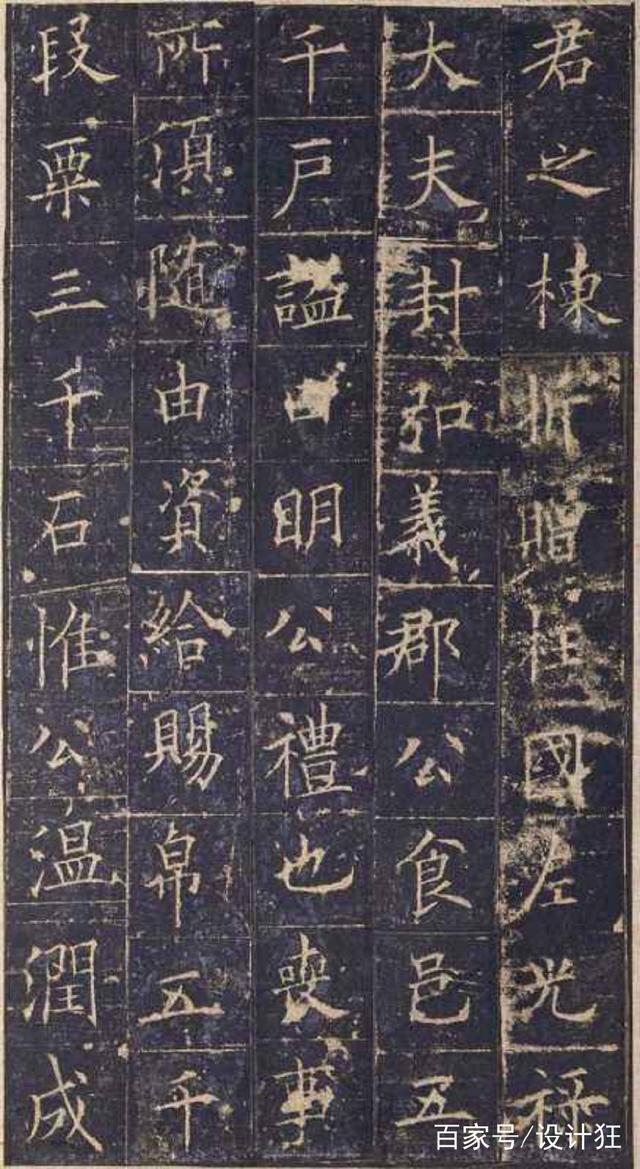 君之棟折贈柱國左光祿
大夫封弘義郡公食邑五
千戶謚曰明公禮也喪事
所須随由資給賜帛五千
段粟三千石惟公温潤成
百家号/设计狂